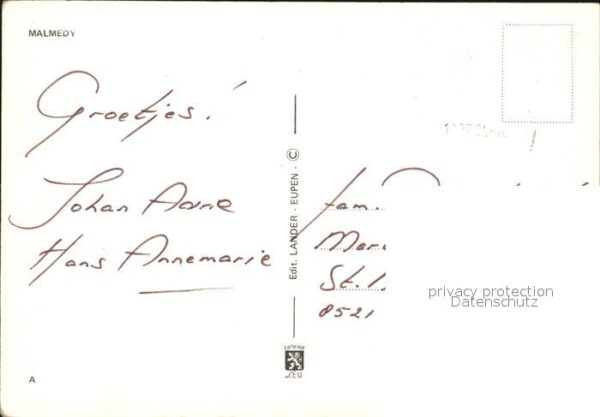 MALMEDY
Groetjes!
Johan Aarne
Hans Annemarie
Edit. LANDER - EUPEN - ©
fam.
St.
8521
privacy protection
Datenschutz
A